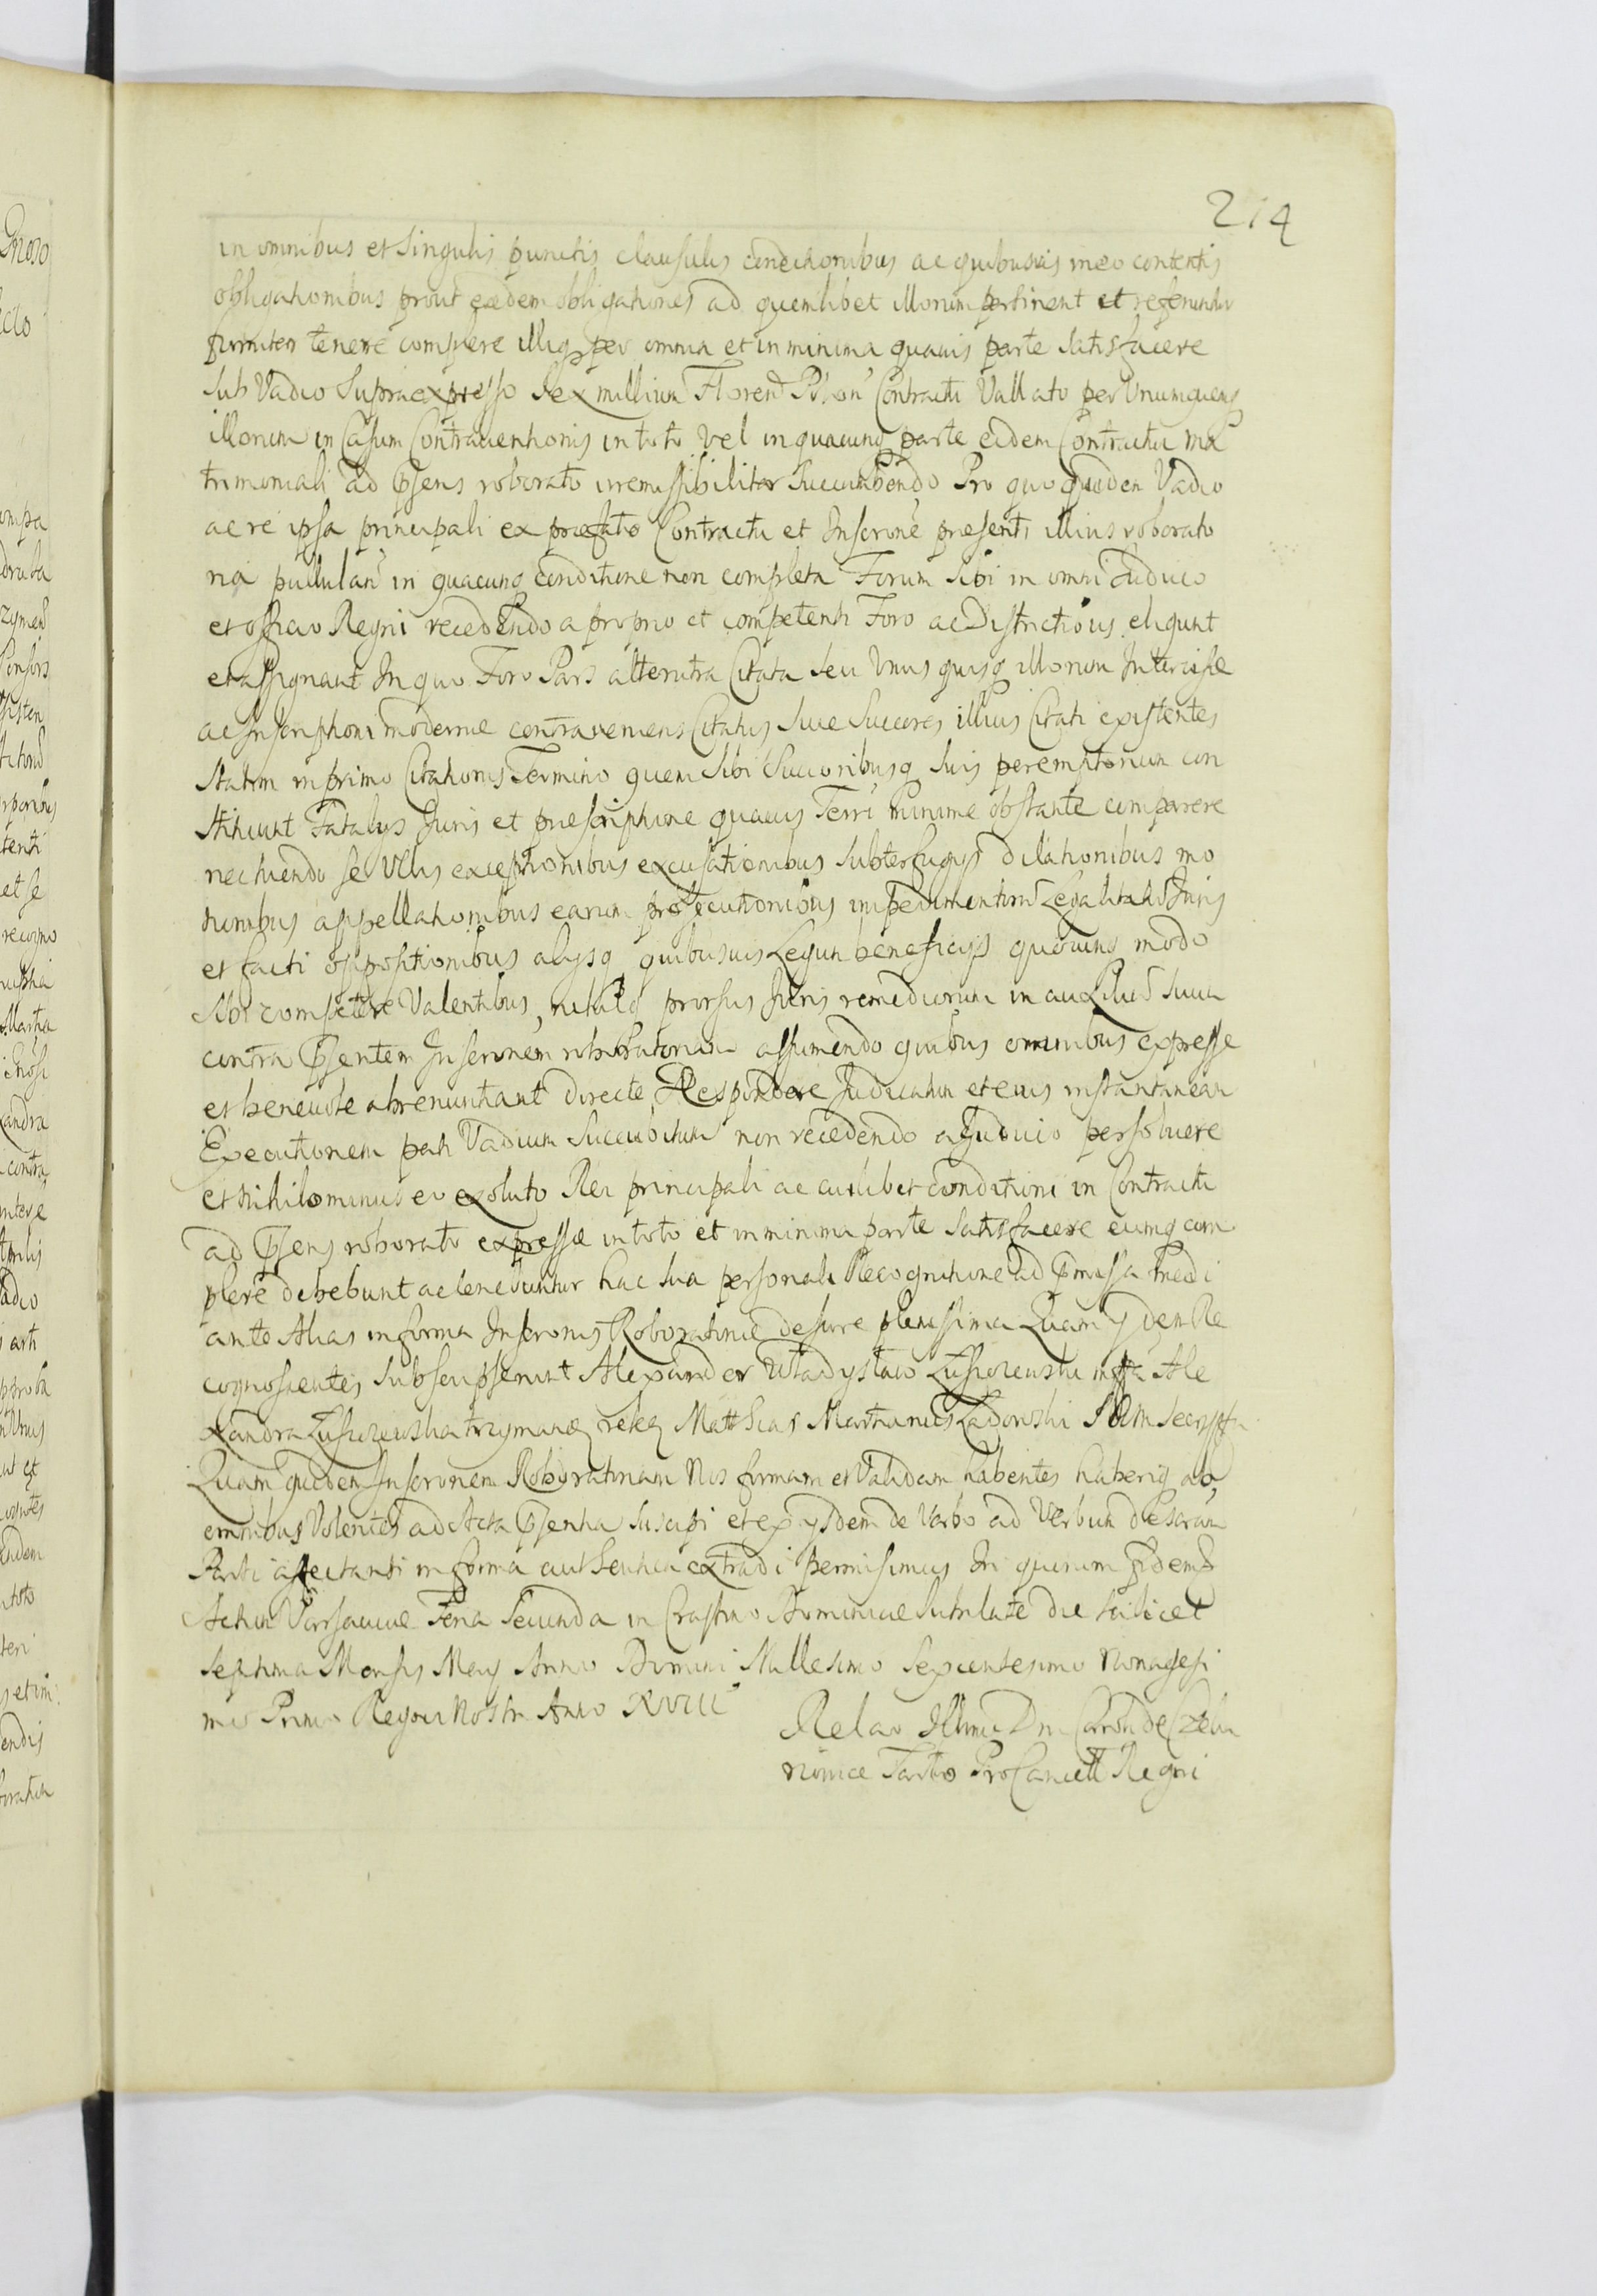 214
in omnibus et Singulis punctis clausulis conditionibus ac quibusvis in eo contentis
obligationibus prout eaedem obligationes ad quemlibet illorum pertinent et referuntur
firmiter tenere complere illiq per omnia et in minima quavis parte satisfacere
sub Vadio Supraexpresso Sex millium Floren Polon Contractu Vallato per Unumquemq
illorum in Casum Contraventionis in toto vel in quacunq parte eidem Contractui Ma
trimoniali ad Psens roborato irremissibiliter Succumbendo Pro quo quidem Vadio
ac re ipsa principali ex praefato Contractu et Inscrone presenti illius roborato
ria pullulan in quacunq conditione non completa Forum sibi in omni Judicio
et officio Regni recedendo a proprio et competenti Foro ac Districtibus eligunt
et assignant In quo Foro Pars alterutra Citata seu Unus quisq illorum
ac Inscriptioni modernae contraveniens Citatus Sive Succores illius Citati existentes
Statim in primo Citationis Termino quem sibi Succoribusq suis peremptorium con
stituunt Fatalys Juris et prescriptione quavis Terri minime obstante comparere
nec tuendo se Ullis exceptionibus excusationibus subterfugys dilationibus mo
tionibus appellationibus earum prosecutionibus impedimentorum Legalitatum Juris
et facti oppositionibus alysq quibusvis Legum beneficys quovis modo
sibi competere Valentibus, nihilq prorsus Juris remediorum in auxilium suum
contra Psentem Inscronem roboratoriam assumendo quibus omnibus expresse
et benevole abrenuntiant directe Respondere Judicatum et eius instantaneam
Executionem pati Vadium Succubitum non recedendo a Judicio persolvere
et nihilominus eo exoluto Rei principali ac cuilibet conditioni in Contractu
ad Psens roborato expressae in toto et in minima parte satisfacere eumq com
plere debebunt ac tenebuntur hac sua personali Recognitione ad Pmissa medi
ante Alias in forma Inscronis Roboratinae de jure plenissima Quam ydem Re
cognoscentes subscripserunt Alexander Wladyslaw Luszczewski mpp Ale
xandra Luszczewska trzymaną ręką Matthias Martianus Ladowski SRM Secr
Quam quidem Inscronem Roboratinam Nos firmam et Validam habentes haberiq ab
omnibus Volentes ad Acta Psentia suscipi et ex ysdem de Verbo ad Verbum descram
Parti affectanti in forma authentica extradi permisimus In quorum fidem
Actum Varsaviae Feria Secunda in Crastino Dominicae Jubilate die scilicet
Septima Mensis May Anno Domini Millesimo Sexcentesimo Nonagesi
mo Primo Regni Nostri Anno XVIII
Relao Illmi Dni Caroli de
Tarlo ProCancell Regni